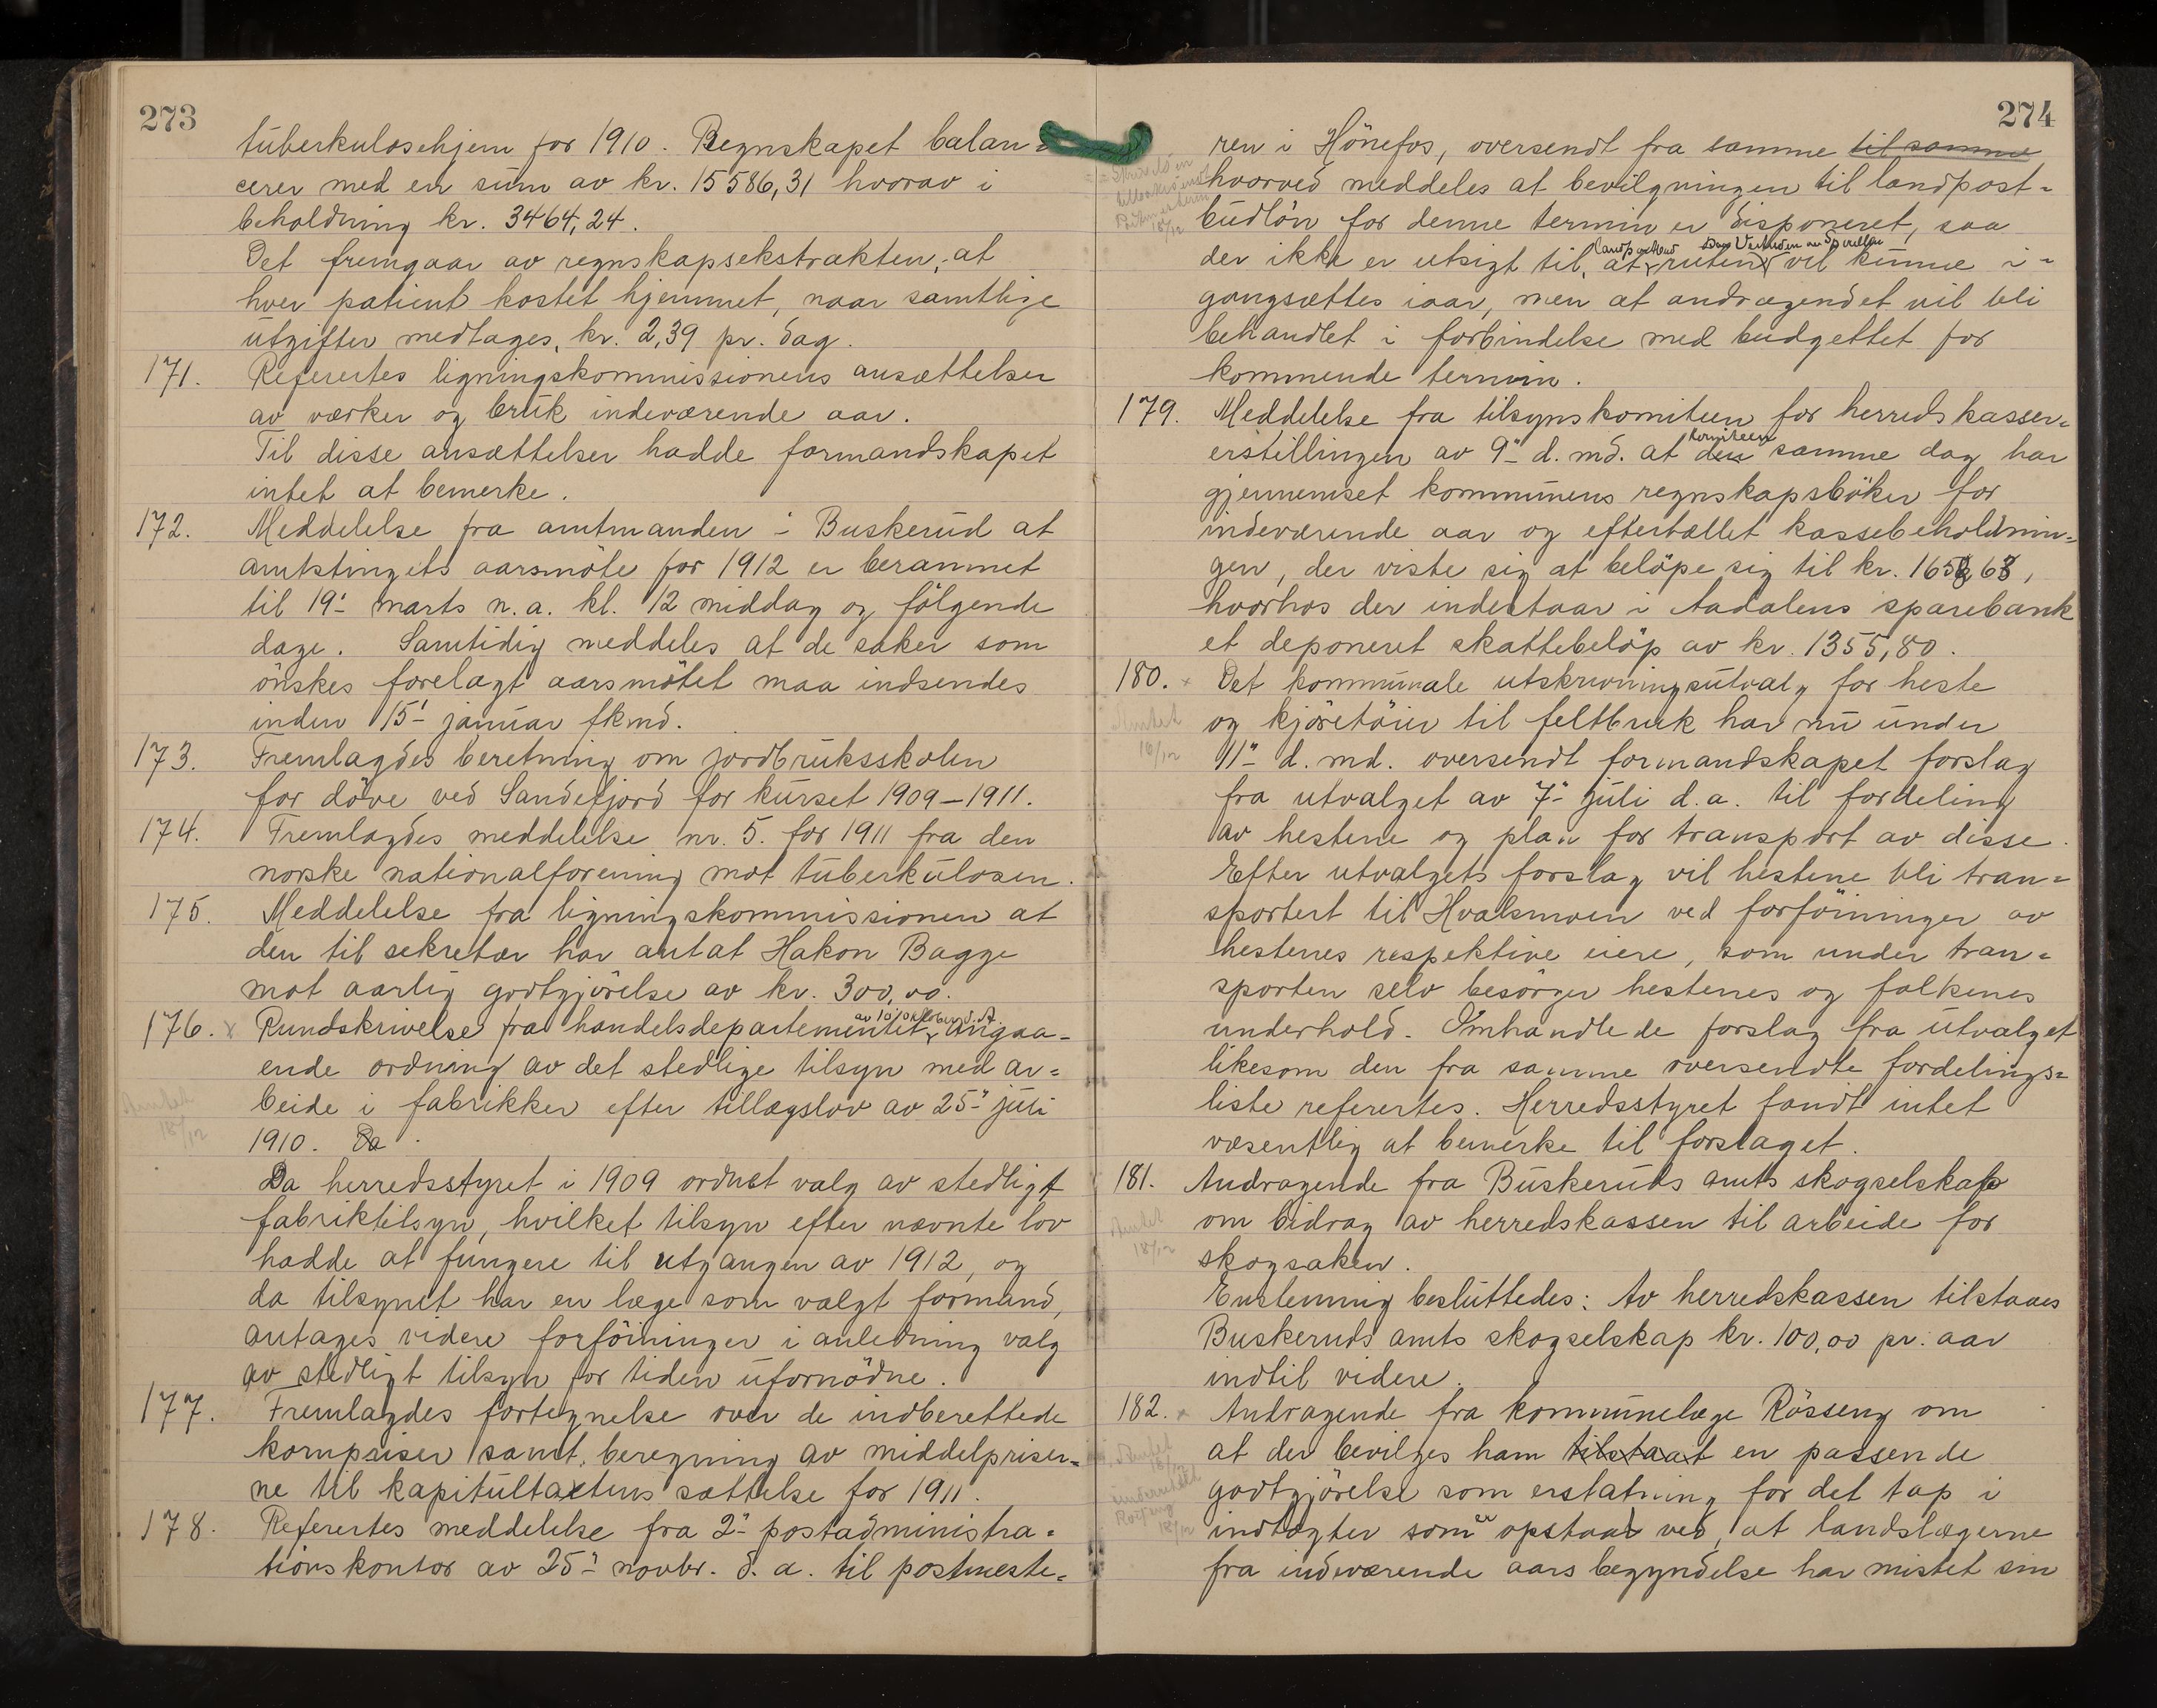 273
tuberkulosehjem for 1910. Regnskapet balan=
cerer med en sum av kr. 15586,31 hvorav i
beholdning kr. 3464,24.
Det fremgaar av regnskapsekstrakten, at
hver patient kostet hjemmet, naar samtlige
utgifter medtages, kr. 2,39 pr. dag.
171. Referertes ligningskommissionens ansættelser
av værker og bruk indeværende aar.
Til disse ansættelser hadde formandskapet
intet at bemerke.
172. Meddelelse fra amtmanden i Buskerud at
amtstingets aarsmöte for 1912 er berammet
til 19- marts n. a. kl. 12 middag og fölgende
dage. Samtidig meddeles at de saker som
önskes forelagt aarsmötet maa indsendes
inden 15- januar fkmd.
173. Fremlagdes beretning om jordbruksskolen
for döve ved Sandefjord for kurset 1909-1911.
174. Fremlagdes meddelelse nr. 5. for 1911 fra den
norske nationalforening mot tuberkulosen.
175. Meddelelse fra ligningskommissionen at
den til sekretær har antat Hakon Bagge
mot aarlig godtgjörelse av kr. 300,00.
176. x Rundskrivelse fra handelsdepartementet, av 10 oktober d. A. angaa-
ende ordning av det stedlige tilsyn med ar=
beide i fabrikker efter tillægslov av 25- juli
1910. Da
Amtet
18/12
Da herredsstyret i 1909 ordnet valg av stedligt
fabriktilsyn, hvilket tilsyn efter nævnte lov
hadde at fungere til utgangen av 1912, og
da tilsynet har en læge som valgt formand,
antages videre forföininger i anledning valg
av stedligt tilsyn for tiden ufornödne.
177. Fremlagdes fortegnelse over de indberettede
kornpriser samt beregning av middelpriser=
ne til kapitultakstens sættelse for 1911.
178. Referertes meddelelse fra 2- postadministra=
tionskontor av 25- novbr. d. a. til postmeste=
274
ren i Hönefos, oversendt fra samme til samme
hvorved meddeles at bevilgningen til landpost=
budlön for denne termin er disponeret, saa
der ikke er utsigt til, at ruten vil kunne i=
gangsættes iaar, men at andragendet vil bli
behandlet i forbindelse med budgettet for
kommende termin.
179. Meddelelse fra tilsynskomiteen for herredskasser=
erstillingen av 9- d. md. at den komiteen samme dag har
gjennemset kommunens regnskapsböker for
indeværende aar og eftertællet kassebeholdnin=
gen, der viste sig at belöpe sig til kr.
hvorhos der indestaar i Aadalens sparebank
et deponeret skattebelöp av kr. 1355,80.
180. x Det kommunale utskrivningsutvalg for heste
og kjöretöier til feltbruk har nu under
11- d. md. oversendt formandskapet forslag
fra utvalget av 7- juli d. a. til fordeling
av hestene og plan for transport av disse.
Amtet
16/12
Efter utvalgets forslag vil hestene bli tran=
sportert til Hvalsmoen ved forföininger av
hestenes respektive eiere, som under tran=
sporten selv besörger hestenes og folkenes
underhold. Omhandlede forslag fra utvalget
likesom den fra samme oversendte fordelings=
liste referertes. Herredsstyret fandt intet
væsentlig at bemerke til forslaget.
181. Andragende fra Buskeruds amts skogselskap
om bidrag av herredskassen til arbeide for
skogsaken.
Amtet
18/12
Enstemmig besluttedes: Av herredskassen tilstaaes
Buskeruds amts skogselskap kr. 100,00 pr. aar
indtil videre.
182. x Andragende fra kommunelæge Rösseng om
at der bevilges ham tilstaat en passende
godtgjörelse som erstatning for det tap i
indtægter som er opstaat ved, at landslægerne
fra indeværende aars begyndelse har mistet sin